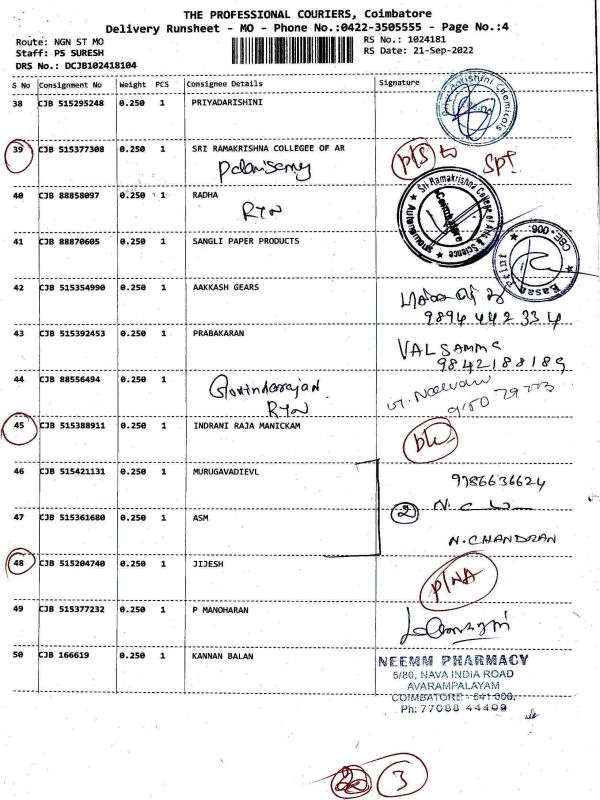 THE PROFESSIONAL COURIERS, Coimbatore
Delivery Runsheet - MO - Phone No.:0422-3505555 - Page No.:4
Route: NGN ST MO
Staff: PS SURESH
DRS No.: DCJB102418104
RS No.: 1024181
RS Date: 21-Sep-2022
S No Consignment No Weight PCS Consignee Details Signature
38 CJB 515295248 0.250 1 PRIYADARISHINI
39 CJB 515377308 0.250 1 SRI RAMAKRISHNA COLLEGEE OF AR
Sri Ramakrishna College of Arts & Science
Coimbatore
40 CJB 88858097 0.250 1 RADHA
41 CJB 88870605 0.250 1 SANGLI PAPER PRODUCTS
CBE-006
42 CJB 515354990 0.250 1 AAKKASH GEARS
9894 442 334
43 CJB 515392453 0.250 1 PRABAKARAN
VALSAMMA
9842188189
44 CJB 88556494 0.250 1
Govindarajan
45 CJB 515388911 0.250 1 INDRANI RAJA MANICKAM
46 CJB 515421131 0.250 1 MURUGAVADIEVL
9786636624
47 CJB 515361680 0.250 1 ASM
2
N. CHANDRAN
48 CJB 515204740 0.250 1 JIJESH
P/NA
49 CJB 515377232 0.250 1 P MANOHARAN
50 CJB 166619 0.250 1 KANNAN BALAN
NEEMM PHARMACY
5/80, NAVA INDIA ROAD
AVARAMPALAYAM
COIMBATORE - 641 006.
Ph: 77088 44409
3